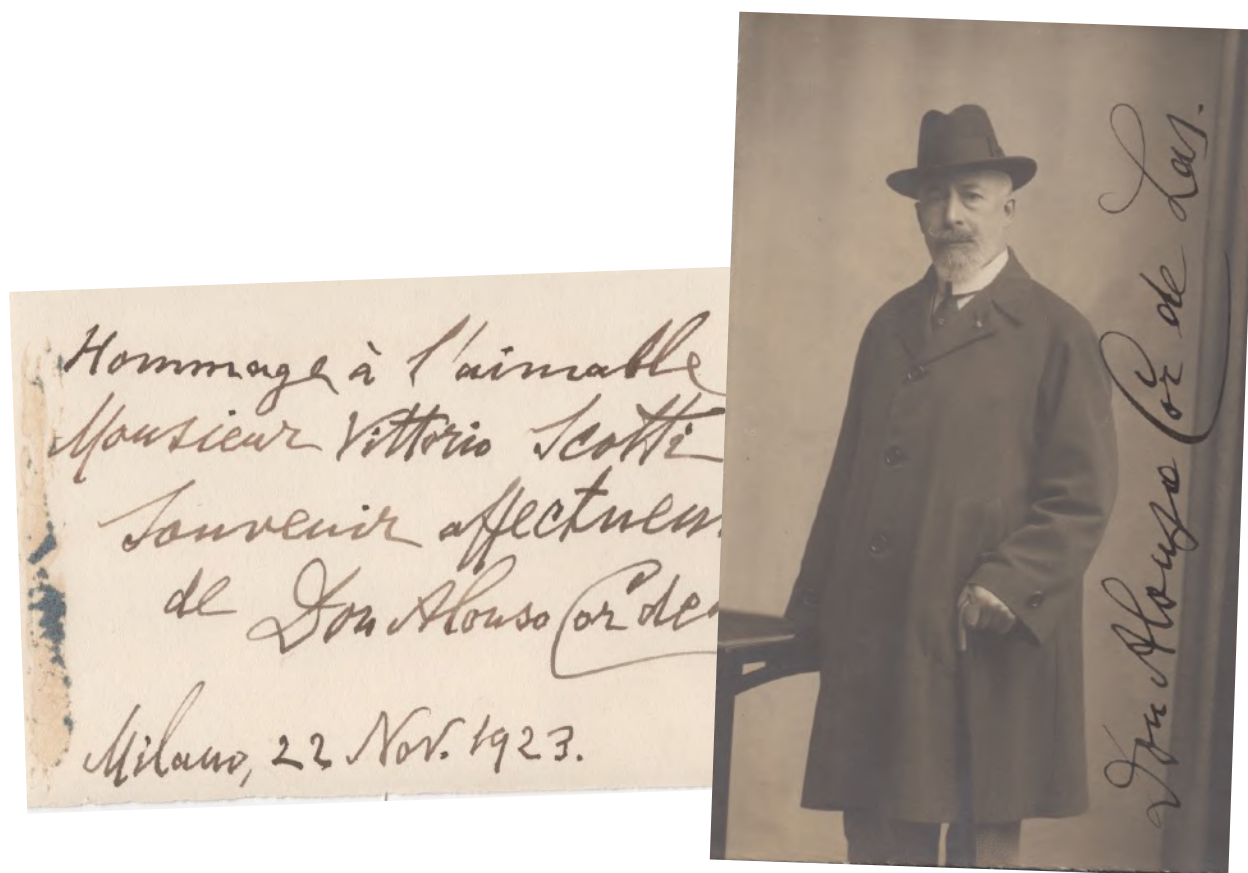 Hommage à l'aimable
Monsieur Vittorio Scotti
Souvenir affectueu
de Don Alonso Cor de
Milano, 22 Nov. 1923.
Don Alonso Cor de Las.